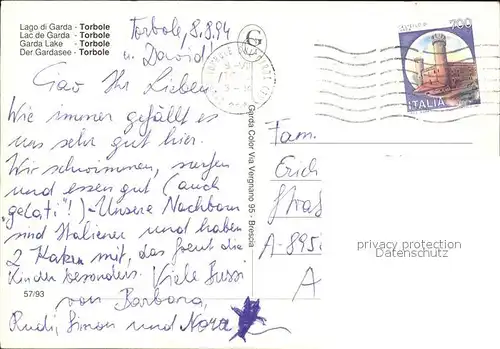 Lago di Garda - Torbole
Lac de Garda - Torbole
Garda Lake - Torbole
Der Gardasee - Torbole
Torbole, 8.8.94
u. David!
Ciao Ihr Lieben
Wie immer gefällt es
uns sehr gut hier.
Wir schwimmen, surfen
und essen gut (auch
"gelati"!) - Unsere Nachbarn
sind Italiener und haben
2 Katzen mit, das freut die
Kinder besonders. Viele Bussi
von Barbara,
Rudi, Simon und Nora
57/93
Garda Color Via Vergnano 95 - Brescia
G
700
ITALIA
Fam.
Erich
A-895
A
privacy protection
Datenschutz